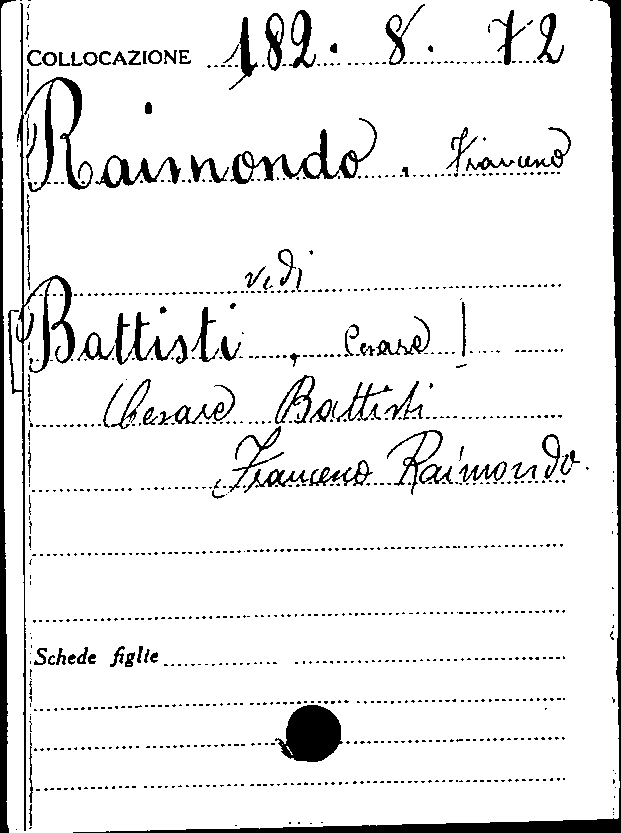 COLLOCAZIONE 182. 8. 72
Raimondo, Francesco
vedi
Battisti, Cesare
Cesare Battisti
Francesco Raimondo.
Schede figlie